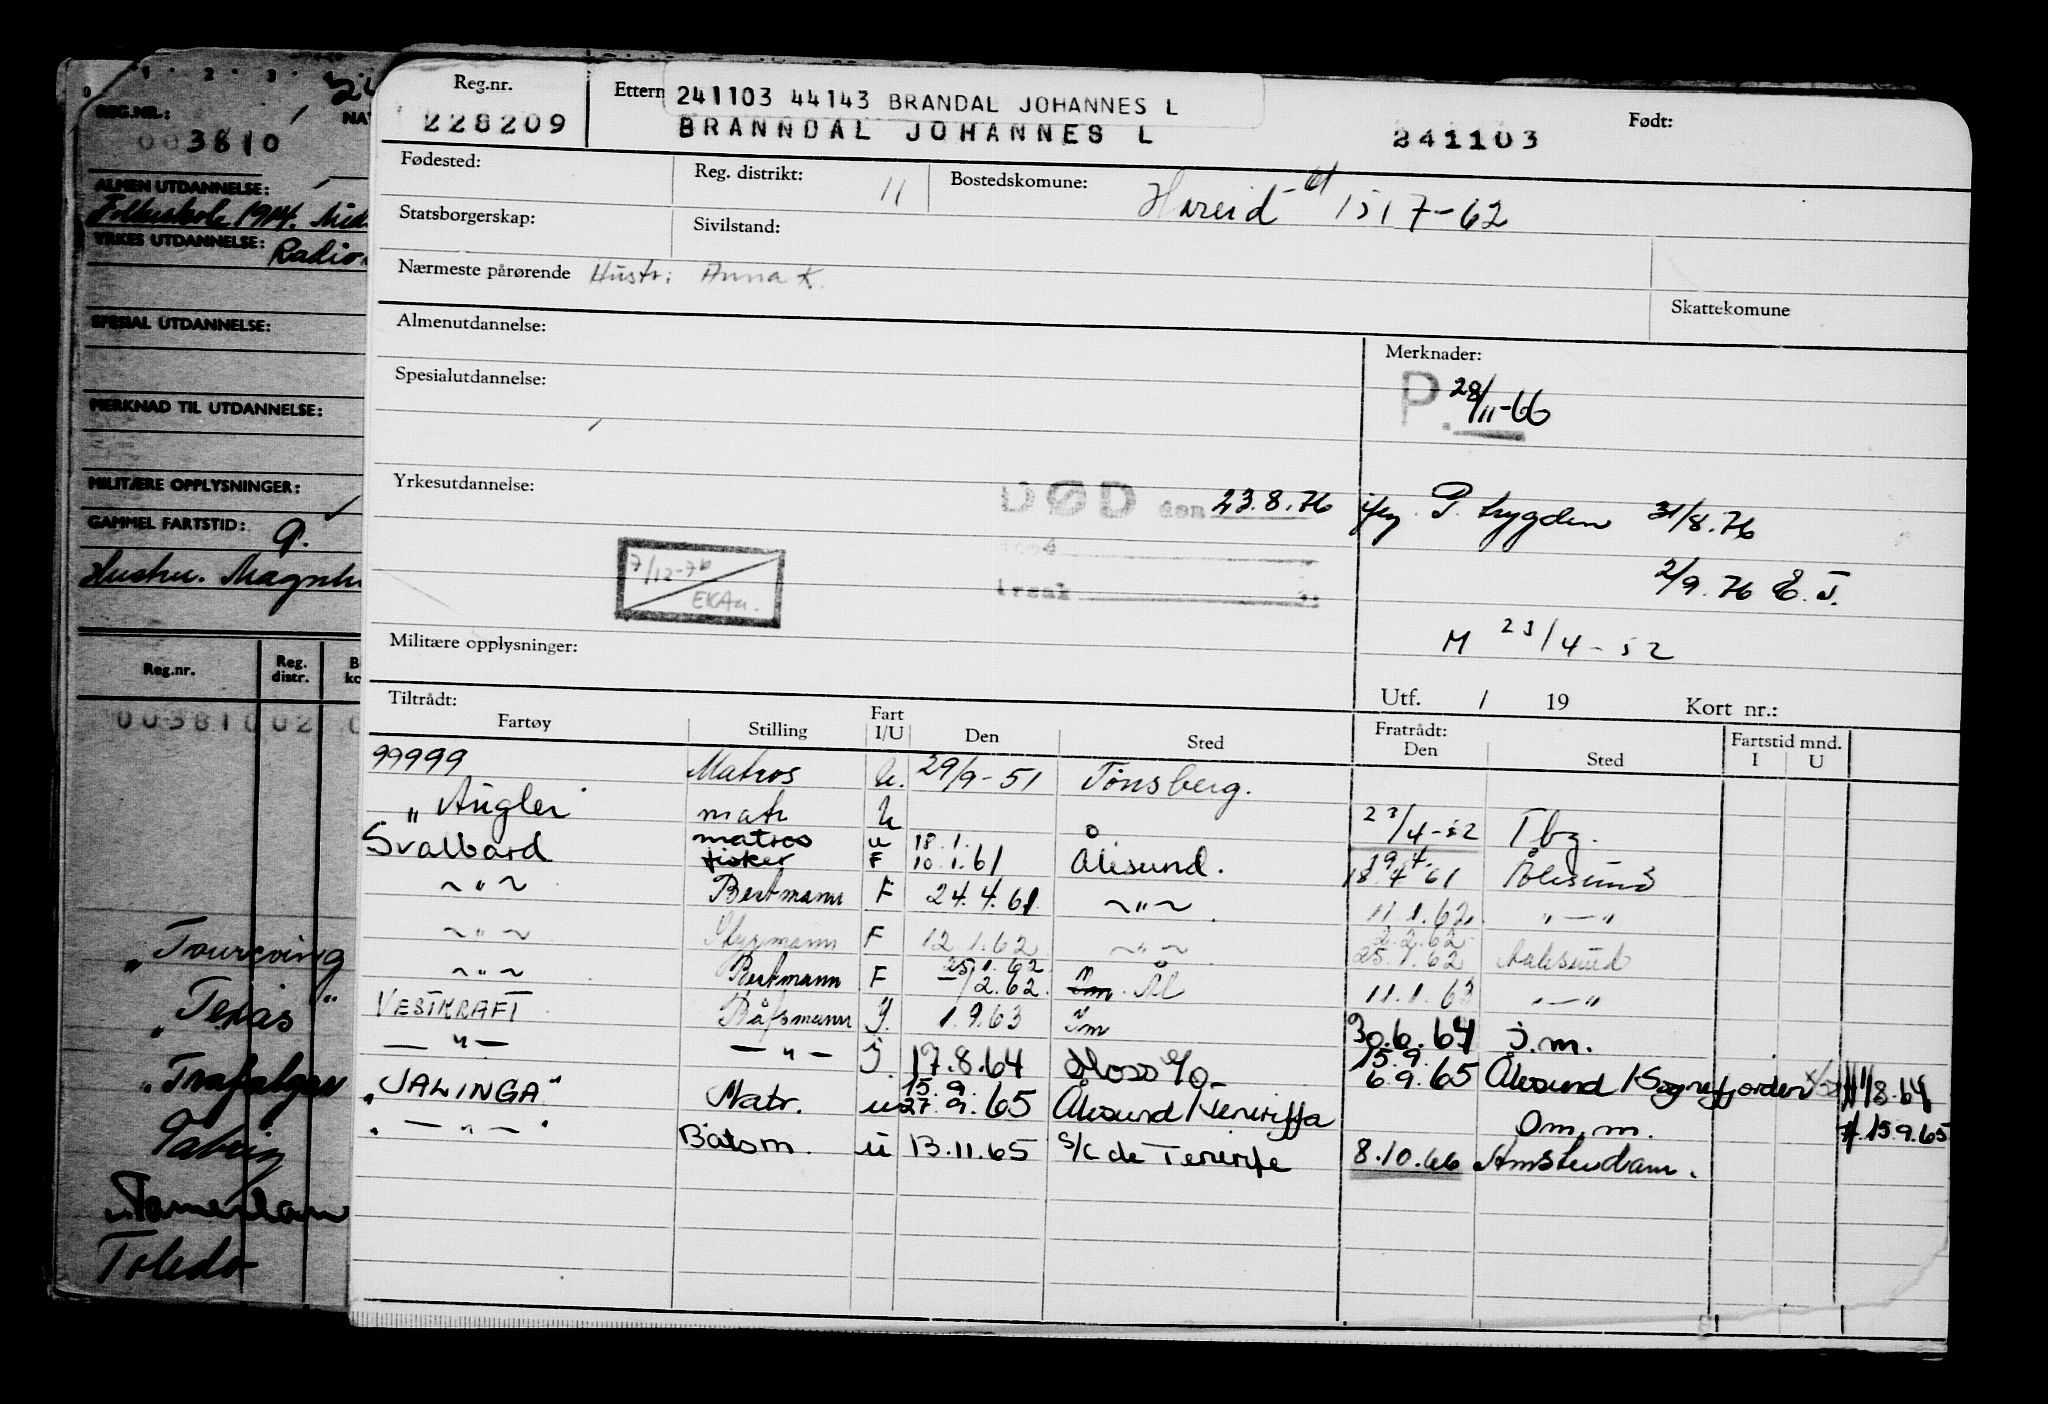 1 2 3
REG.NR.:
003810
ALMEN UTDANNELSE:
Folkeskole 1914.
YRKES UTDANNELSE:
Radio
SPESIAL UTDANNELSE:
MERKNAD TIL UTDANNELSE:
MILITÆRE OPPLYSNINGER:
GAMMEL FARTSTID:
Hustru.
Reg.nr. Reg. distr.
00381002
"Tourcoing
"Texas"
"Trafalgar
Tabriz
Tamerlane
Toledo
Reg.nr.
228209
Ettern
241103 44143 BRANDAL JOHANNES L
BRANNDAL JOHANNES L
241103
Født:
Fødested:
Reg. distrikt: 11
Bostedskomune: Hareid - 61 1517-62
Statsborgerskap:
Sivilstand:
Nærmeste pårørende Hustr: Anna K.
Skattekomune
Almenutdannelse:
Merknader:
P. 28/11-66
Spesialutdannelse:
Yrkesutdannelse:
DØD den 23.8.76 ifg. P. trygden 31/8.76
2/9.76 E.T.
7/12-76
EKAn.
M 23/4-52
Militære opplysninger:
Utf. / 19 Kort nr.:
Tiltrådt: Fartøy Stilling Fart I/U Den Sted Fratrådt: Den Sted Fartstid mnd. I U
99999 Matros u. 29/9-51 Tønsberg.
"Angler" matr u 23/4-52 Tbg.
Svalbard matros u 18.1. 19.4.
fisker F 10.1.61 Ålesund. 18.4.61 Ålesund
~"~ Bestmann F 24.4.61 ~"~ 11.1.62. "—"
~"~ Styrmann F 12.1.62 ~"~ 2.2.62 25.1.62 Aalesund
~"~ Bestmann F 25/1.62 /2.62. Ål 11.1.63 "—"
VESTKRAFT Båtsmann I. 1.9.63 Im 30.6.64 J.m.
—"— —"— I. 17.8.64 Moss 15.9. 6.9.65 Ålesund/Sognefjorden 1/8.64
"JALINGA" Matr. u 15.9. 27.9.65 Ålesund/Teneriffa Om.m. 15.9.65
"—"—" Båtsm. u 13.11.65 S/C de Tenerife 8.10.66 Amsterdam.